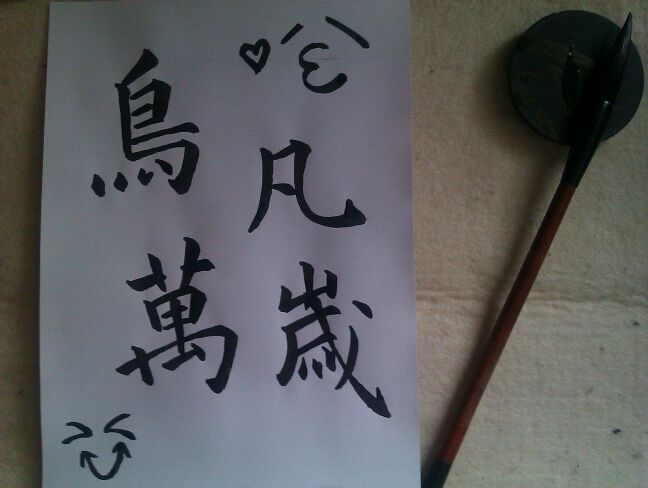 鳥凡
萬歲